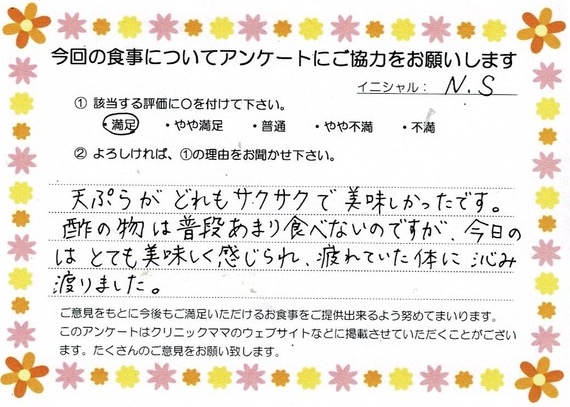 今回の食事についてアンケートにご協力をお願いします
イニシャル： N.S
① 該当する評価に○を付けて下さい。
・満足 ・やや満足 ・普通 ・やや不満 ・不満
② よろしければ、①の理由をお聞かせ下さい。
天ぷらが どれもサクサクで 美味しかったです。
酢の物は普段あまり食べないのですが、今日の
はとても美味しく感じられ、疲れていた体に沁み
渡りました。
ご意見をもとに今後もご満足いただけるお食事をご提供出来るよう努めてまいります。
このアンケートはクリニックママのウェブサイトなどに掲載させていただくことがござい
ます。たくさんのご意見をお願い致します。